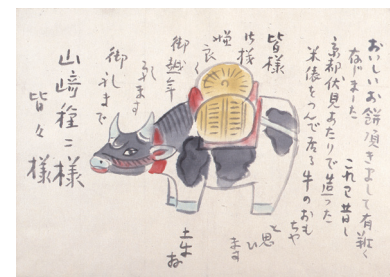 おいしいお餅頂きまして有難く
なじました これで昔し
京都伏見あたりで造った
米俵をつんで居る牛のおも
ちや
と思
ひ
ます
皆様
御越年
祈ります
御礼まで
山﨑種二様
皆々様